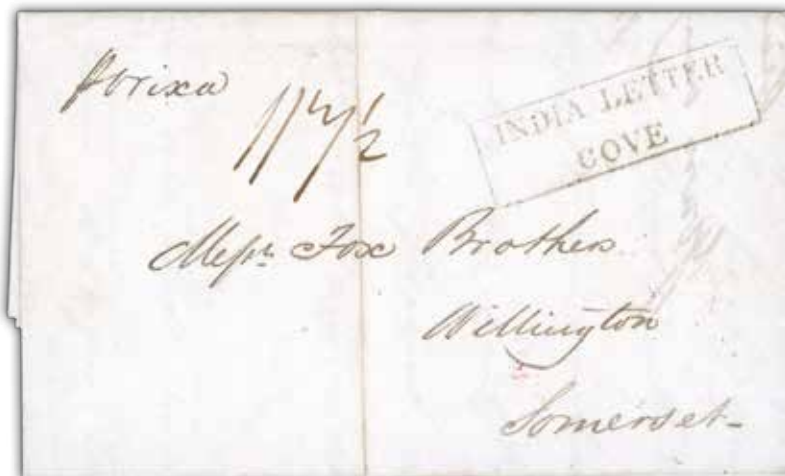 p Orixa
1/7½
INDIA LETTER
COVE
Messrs Fox Brothers
Wellington
Somerset-